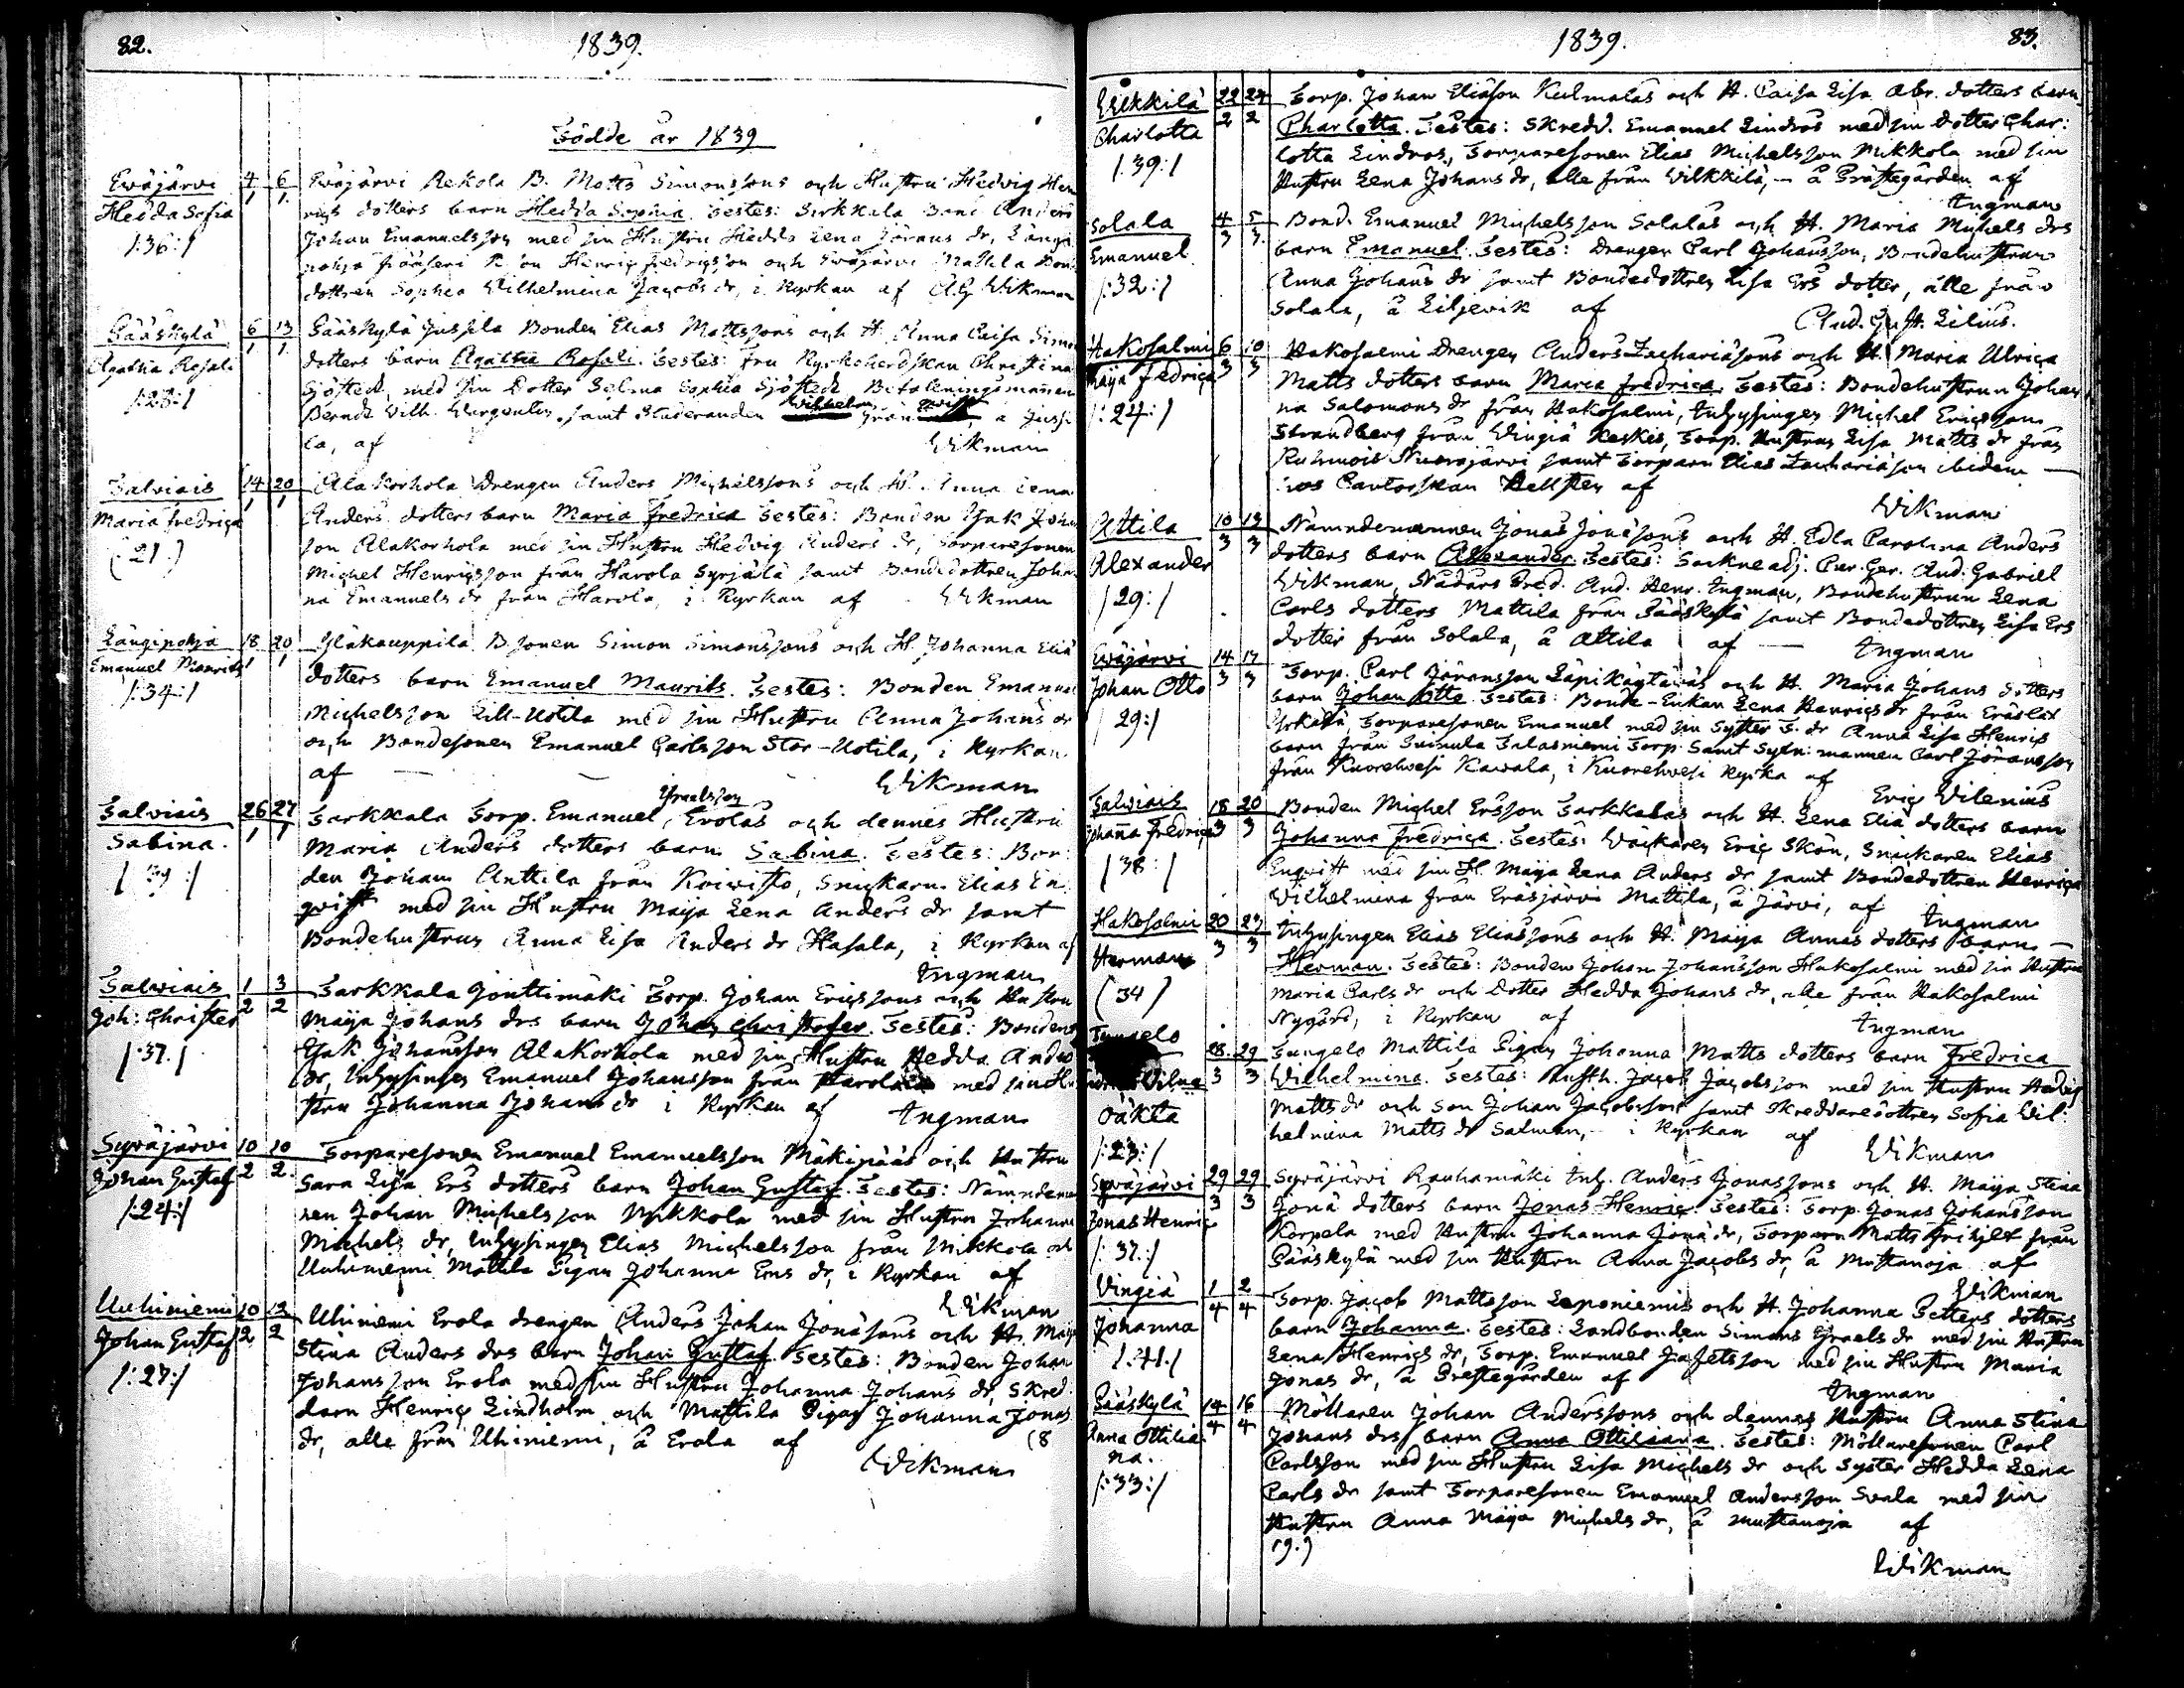 82.
1839.
Födde år 1839
Eräjärvi 4/1 6/1 Eräjärvi Rekola B. Matts Simonssons och Hustru Hedvig Hen
Hedda Sofia rics dotters barn Hedda Sophia. Testes: Sirkkala Bond Anders
/:36:/ Johan Emanuelsson med sin Hustru Hedda Lena Jörans dr, Längi
pohja Henric Fredricsson och Eräjärvi Mattila Bon
dottren Sophia Wilhelmina Jacobs dr, i Kyrkan af A.G. Wikman
Sääskylä 6/1 13/1 Sääskylä Jussila Bonden Elias Mattssons och H. Anna Caisa Simo
Agatha Rosali dotters barn Agatha Rosali. Testes: Fru Kyrkoherdskan Christina
/:28:/ Sjöstedt, med sin Dotter Selma Sophia Sjöstedt, Befalningsmannen
Berndt Wilh. Wargentin, samt Studeranden Wilhelm från å Jussi
la, af Wikman
Talviais 14/1 20/1 Alakorhola Drengen Anders Michelssons och H. Anna Lena
Maria Fredrica Anders dotters barn Maria Fredrica Testes: Bonden Isak Joha
(21) son Alakorhola med sin Hustru Hedvig Anders dr, Torparesonen
Michel Henricsson från Harola Syrjälä samt Bondedottren Johan
na Emanuels dr från Harola, i Kyrkan af Wikman
Längipohja 18/1 20/1 Yläkauppila B.sonen Simon Simonssons och H. Johanna Eliæ
Emanuel Maurits dotters barn Emanuel Maurits. Testes: Bonden Emanuel
/:34:/ Michelsson Lill-Uotila med sin Hustru Anna Johans dr
och Bondesonen Emanuel Carlsson Stor-Uotila, i Kyrkan
af Wikman
Talviais 26/1 27/1 Sarkkala Torp. Emanuel Israelsson Erolas och dennes Hustru
Sabina. Maria Anders dotters barn Sabina. Testes: Bon
/:39:/ den Johan Anttila från Koivisto, Snickaren Elias En
qvist med sin Hustru Maija Lena Anders dr samt
Bondehustrun Anna Lisa Anders dr Hasala, i Kyrkan af
Ingman
Talviais 1/2 3/2 Sarkkala Torp. Johan Ericssons och Hustru
Joh: Christer Maija Johans drs barn Johan Christofer. Testes: Bonden
/:37:/ Isak Johansson Alakorhola med sin Hustru Hedda Anders
dr, Inhysingen Emanuel Johansson från Harola med sin Hu
stru Johanna Johans dr i Kyrkan af Ingman
Syväjärvi 10/2 10/2 Torparesonen Emanuel Emanuelsson Mäkipääs och Hustru
Johan Gustaf Sara Lisa Ers dotters barn Johan Gustaf. Testes: Nämndeman
/:24:/ nen Johan Michelsson Mikkola med sin Hustru Johanna
Michels dr, Inhysingen Elias Michelsson från Mikkola och
Uuhiniemi Mattila Pigan Johanna Ers dr, i Kyrkan af
Wikman
Uuhiniemi 10/2 13/2 Uhiniemi Erola drengen Anders Johan Jonæsons och H. Maija
Johan Gustaf Stina Anders drs barn Johan Gustaf. Testes: Bonden Johan
/:27:/ Johansson Erola med sin Hustru Johanna Johans dr, Skred
daren Henric Lindholm och Mattila Pigan Johanna Jonas
dr, alle från Uhiniemi, å Erola af (8
Wikman
1839.
83.
Erkkilä 22/2 24/2 Torp. Johan Eliasson Kulmalas och H. Caisa Lisa Abr. dotters barn
Charlotta Charlotta. Testes: Skredd. Emanuel Lindros med sin dotter Char:
/:39:/ lotta Lindros, Torparesonen Elias Michelsson Mikkola med sin
Hustru Lena Johans dr, alle från Erkkilä, - å Prästegården af
Ingman
Solala 4/3 5/3 Bond. Emanuel Michelsson Solalas och H. Maria Michels drs
Emanuel barn Emanuel. Testes: Drengen Carl Johansson, Bondehustrun
/:32:/ Anna Johans dr samt Bondedottren Lisa Ers dotter, alle från
Solala, å Liljevik af And. Gust. Lilius.
Hakosalmi 6/3 10/3 Hakosalmi Drengen Anders Zachariæsons och H. Maria Ulrica
Maija Fedrica Matts dotters barn Maria Fredrica. Testes: Bondehustrun Johan
/:24:/ na Salomons dr från Hakosalmi, Inhysingen Michel Ericsson
Strandberg från Vingiä Keskis, Torp. Hustrun Lisa Matts dr från
Kuhmois samt Torparn Elias Zachariæson ibidem —
hos Cantorskan Hellsten af
Wikman
Attila 10/3 13/3 Nämndemannen Jonas Jonæsons och H. Edla Carolina Anders
Alexander dotters barn Alexander. Testes: Sockneadj. Cur. Ger. And. Gabriel
/29:/ Wikman, Nådårs Pred. And. Henr. Ingman, Bondehustrun Lena
Carls dotters Mattila från Sääskylä samt Bondedottren Lisa Ers
dotter från Solala, å Attila af — Ingman
Eräjärvi 14/3 17/3 Torp. Carl Jöransson och H. Maria Johans dotters
Johan Otto barn Johan Otto. Testes: Bonde-Enkan Lena Henrics dr från
/29:/ Torparesonen Emanuel med sin Syster Anna Lisa Henrics
barn från Salasniemi Torp samt Sytn: mannen Carl Jöransson
från Kuorehvesi Kawala, i Kuorehvesi Kyrka af
Eric Vilenius
Talviais 18/3 20/3 Bonden Michel Ersson Sarkkalas och H. Lena Eliæ dotters barn
Johana Fredrica Johanna Fredrica. Testes: Wäckaren Eric Skön, Snickaren Elias
/38:/ Enqvist med sin H. Maija Lena Anders dr samt Bondedottren Henrica
Wilhelmina från Eräsjärvi Mattila, å Järvi, af Ingman
Hakosalmi 20/3 23/3 Inhysingen Elias Eliassons och H. Maija Annas dotters barn —
Herman Herman. Testes: Bonden Johan Johansson Hakosalmi med sin Hustru
(34) Maria Carls dr och dotter Hedda Johans dr, alle från Hakosalmi
Nygård, i Kyrkan af Ingman
28/3 29/3 Mattila Pigan Johanna Matts dotters barn Fredrica
Vilna Wilhelmina. Testes: Husth. Jacob Jacobsson med sin Hustru Hedvig
oäkta Matts dr och Son Johan Jacobsson samt Skreddaredottren Sofia Wil:
/:23:/ helmina Matts dr Salman, i Kyrkan af Wikman
Syväjärvi 29/3 29/3 Syväjärvi Rauhamäki Inh. Anders Jonassons och H. Maija Stina
Jonas Henric Jonæ dotters barn Jonas Henric. Testes: Torp. Jonas Johansson
/:37:/ Korpela med Hustru Johanna Jonæ dr, Torparn Matts från
Sääskylä med sin Hustru Anna Jacobs dr, å Mustanoja af
Wikman
Vingiä 1/4 2/4 Torp. Jacob Mattsson Leponiemis och H. Johanna Petters dotters
Johanna barn Johanna. Testes: Landbonden Simons Israels dr med sin Hustru
/:41:/ Lena Henrics dr, Torp. Emanuel med sin Hustru Maria
Jonas dr, å Prestegården af Ingman
Sääskylä 14/4 16/4 Möllaren Johan Anderssons och dennes Hustru Anna Stina
Anna Ottilia Johans drs barn Anna Ottiliana. Testes: Möllaresonen Carl
na. Carlsson med sin Hustru Lisa Michels dr och Syster Hedda Lena
/:33:/ Carls dr samt Torparesonen Emanuel Andersson Svala med sin
Hustru Anna Maija Michels dr, å Mustanoja af
19.)
Wikman